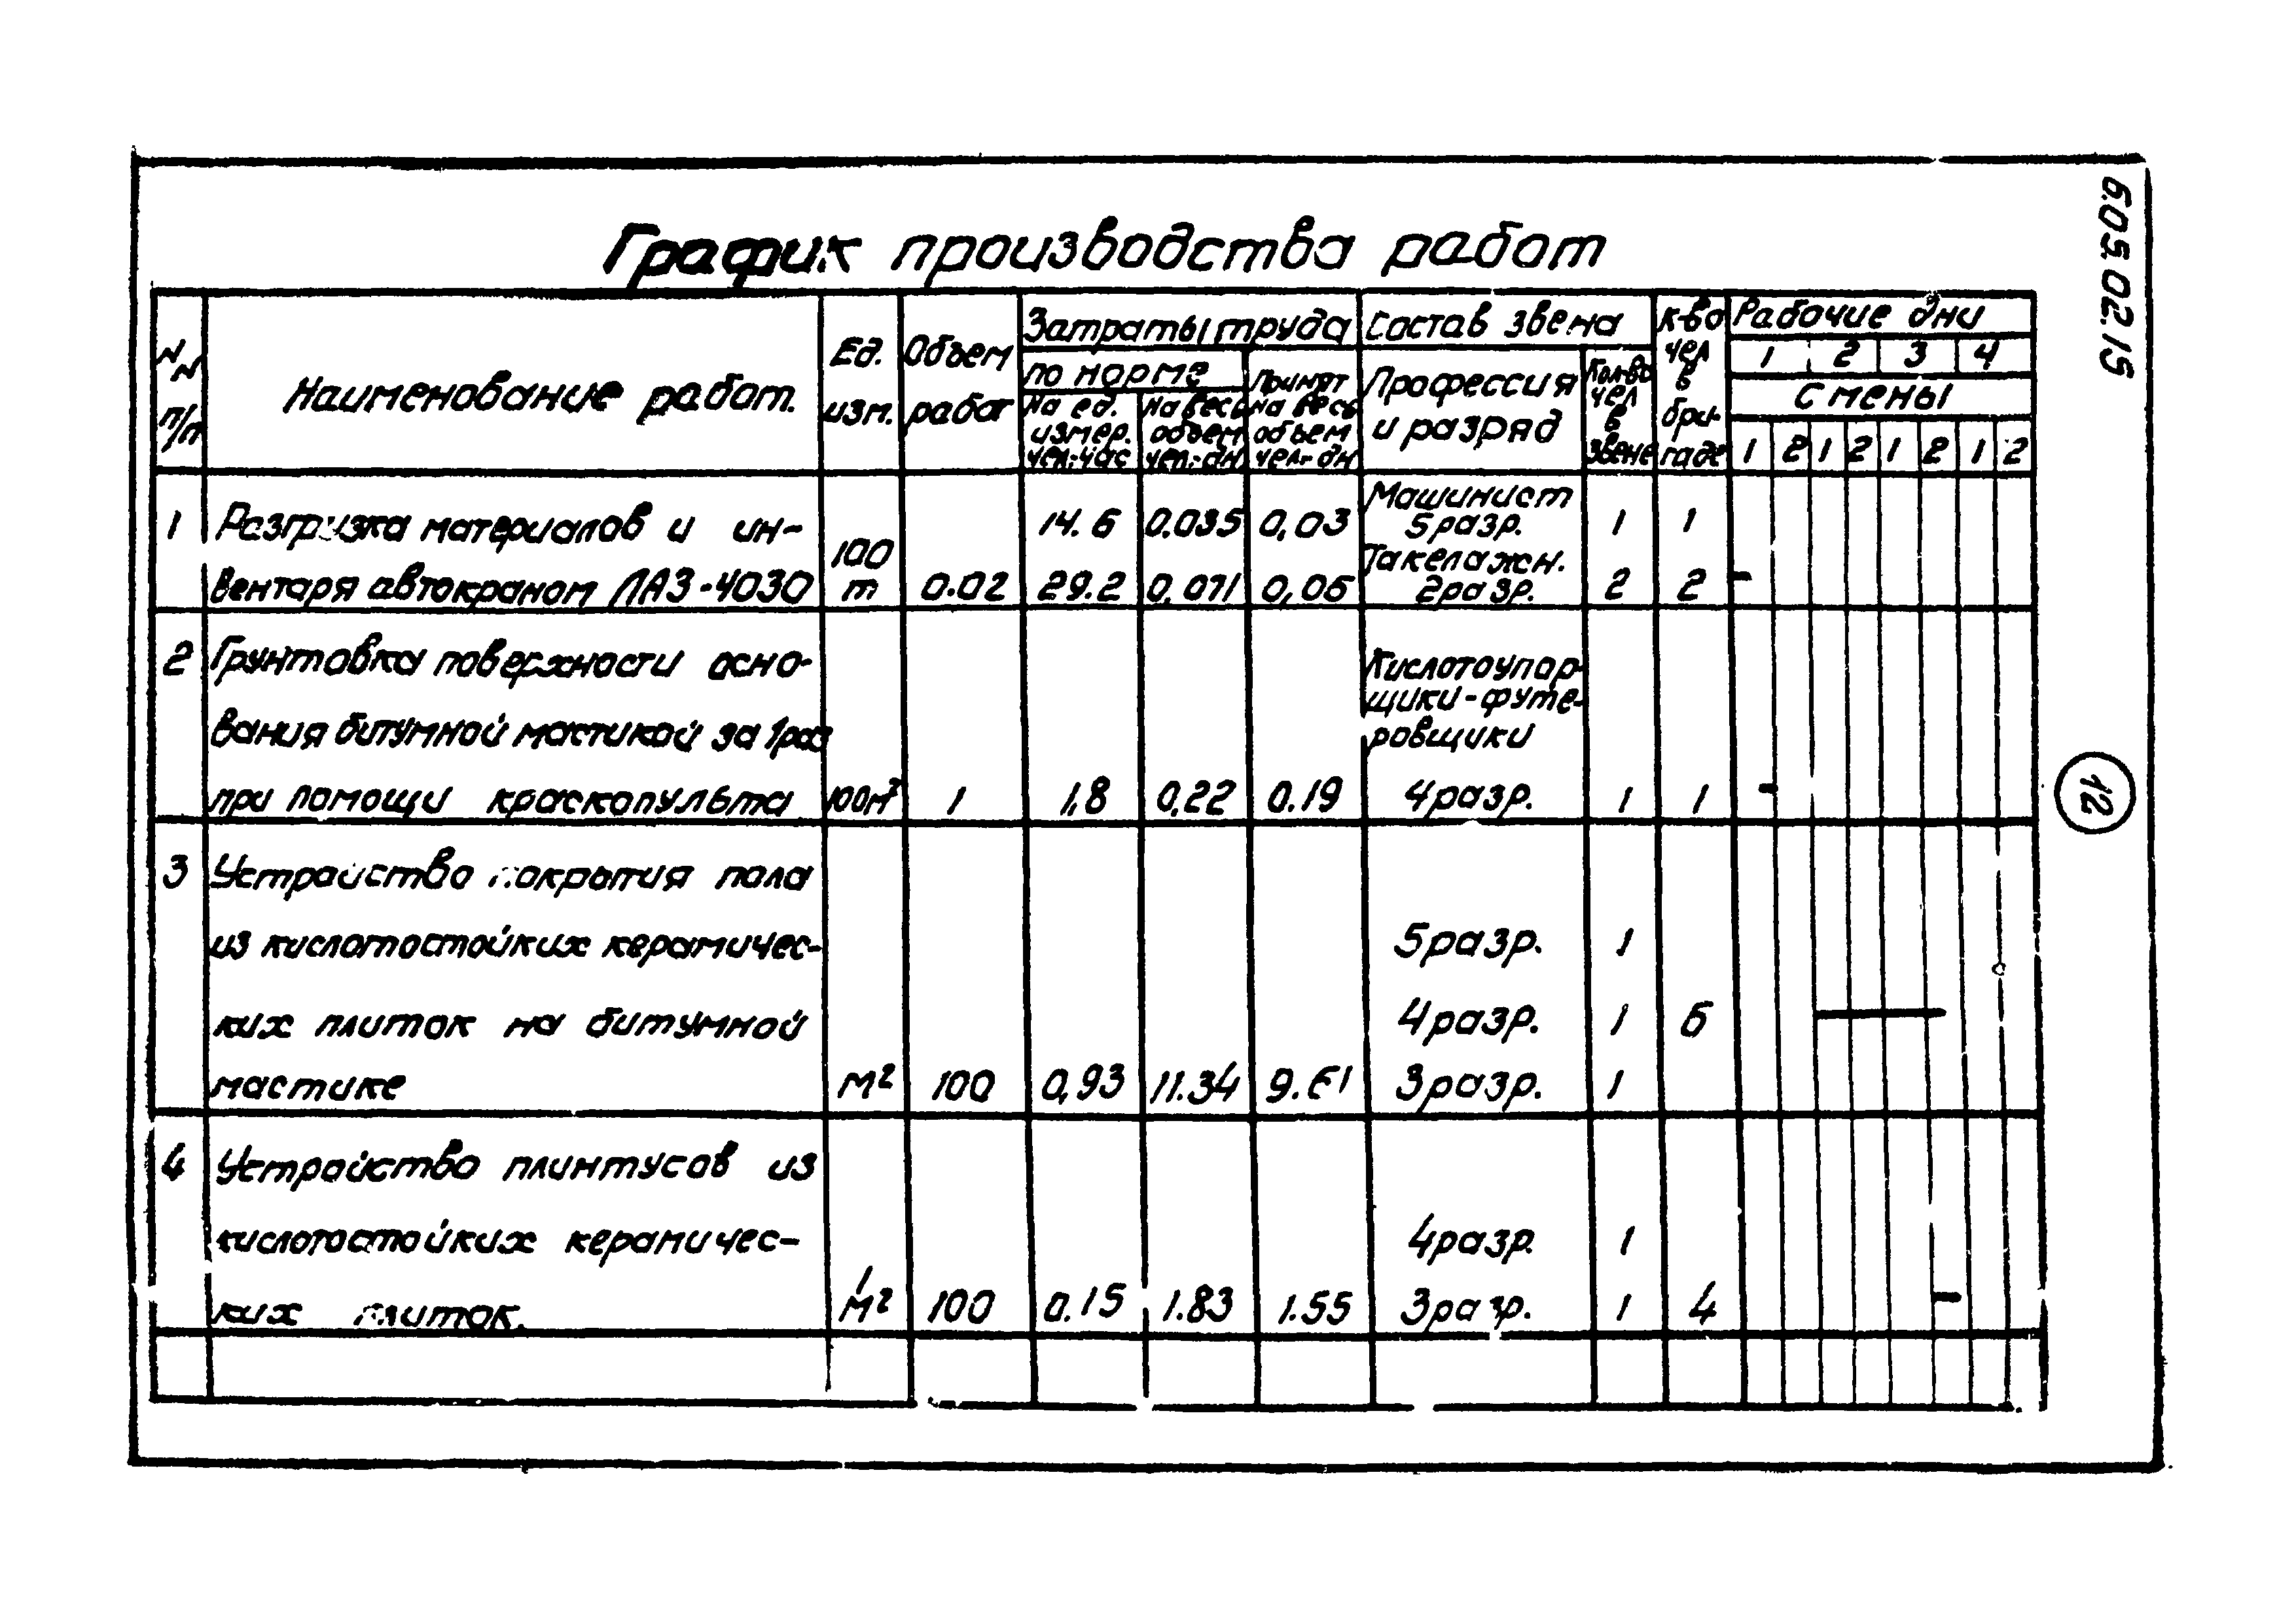 6.05.02.15
График производства работ
N N п/п
Наименование работ.
Ед. изм.
Объем работ
Затраты труда
по норме
На ед. измер. чел.-час
На весь объем чел.-дн
Принят на весь объем чел.-дн
Состав звена
Профессия и разряд
Кол-во чел в звене
К-во чел в бригаде
Рабочие дни
1 2 3 4
Смены
1 2 1 2 1 2 1 2
1 Разгрузка материалов и ин-
вентаря автокраном ЛАЗ-4030
100 т 0.02
14.6 0.035 0,03 Машинист 5 разр. 1 1
29.2 0,071 0,06 Такелажн. 2 разр. 2 2
2 Грунтовка поверхности осно-
вания битумной мастикой за 1 раз
при помощи краскопульта 100м² 1 1,8 0,22 0.19
Кислотоупор-
щики-футе-
ровщики
4 разр. 1 1
3 Устройство покрытия пола
из кислотостойких керамичес- 5 разр. 1
ких плиток на битумной 4 разр. 1 6
мастике м² 100 0,93 11.34 9.61 3 разр. 1
4 Устройство плинтусов из
кислотостойких керамичес- 4 разр. 1
ких плиток. м² 100 0.15 1.83 1.55 3 разр. 1 4
12